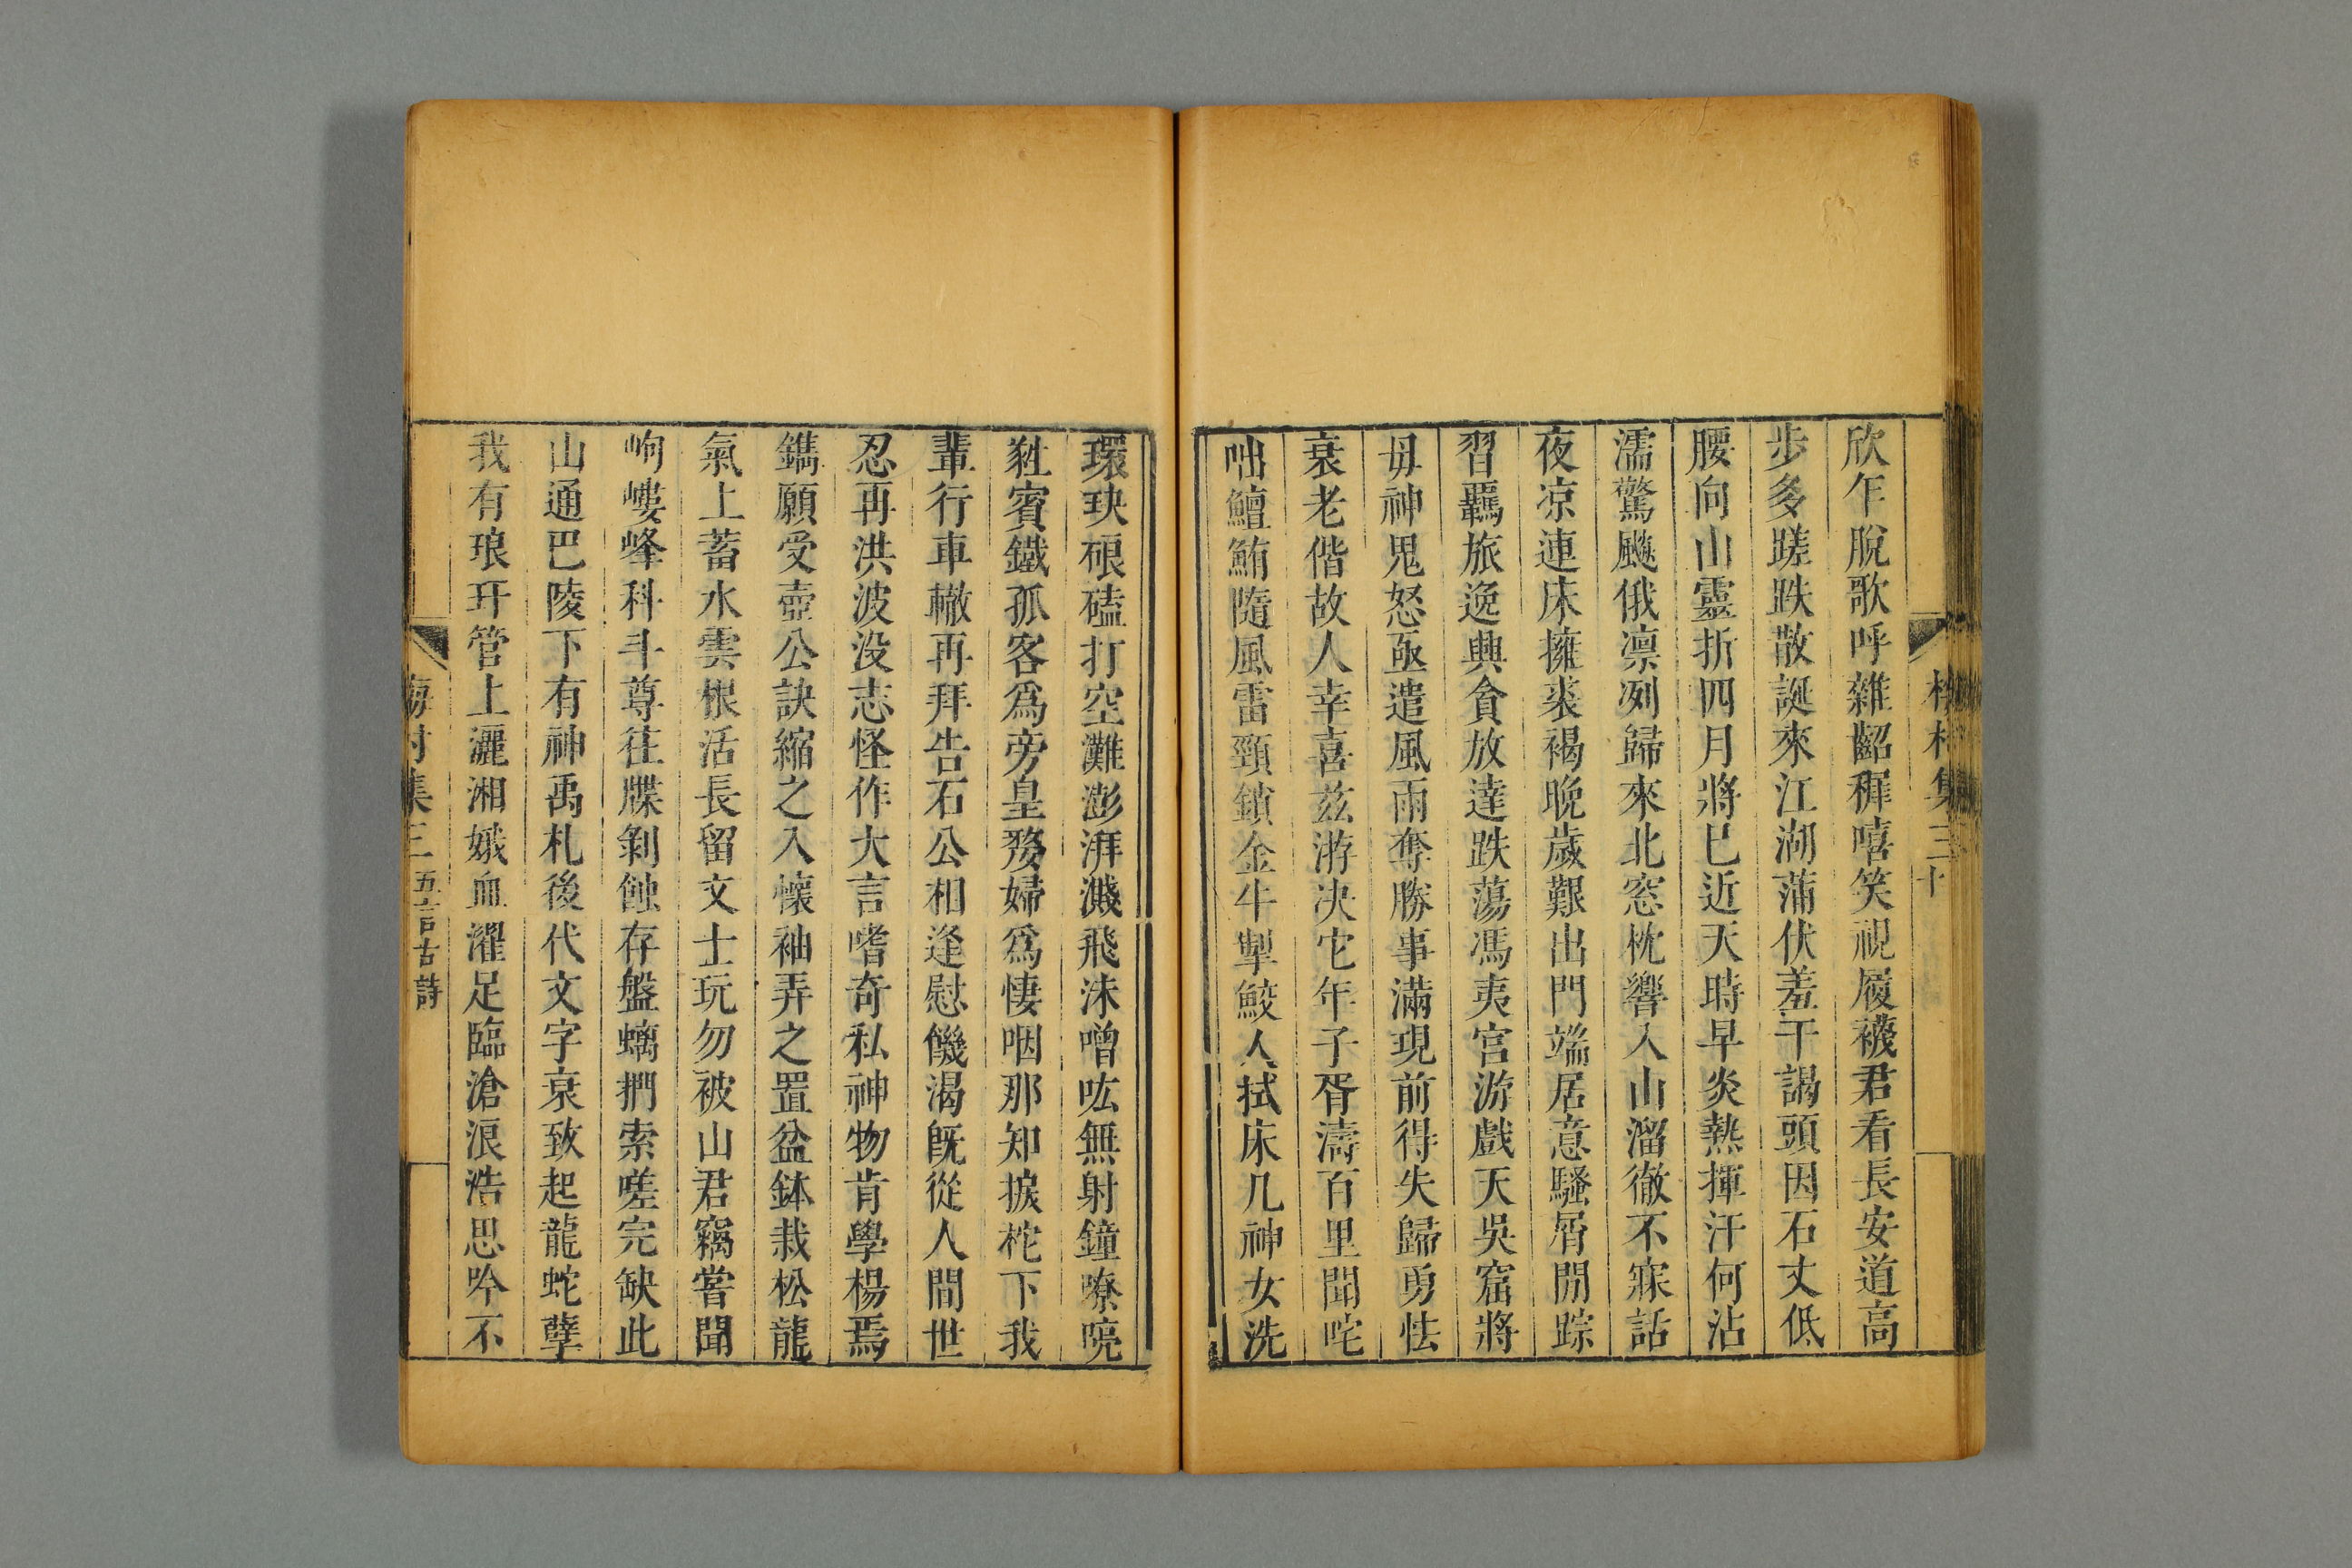 欣乍脫歌呼雜齠穉嘻笑視履襪君看長安道高
步多蹉跌散誕來江湖蒲伏羞干謁頭因石丈低
腰向山靈折四月將巳近天時早炎熱揮汗何沾
濡驚颷俄凛冽歸來北窓枕響入山溜徹不寐話
夜凉連床擁裘褐晚歲艱出門端居意騷屑閒踪
習羈旅逸興貪放達跌蕩馮夷宮游戲天吳窟將
毋神鬼怒亟遣風雨奪勝事滿現前得失歸勇怯
衰老偕故人幸喜茲游决它年子胥濤百里聞咤
咄鱣鮪隨風雷頸鎖金牛掣鮫人拭床几神女洗
環玦硠磕打空灘澎湃濺飛沫噌吰無射鐘嘹喨
甤賓鐵孤客爲旁皇嫠婦爲悽咽那知捩柁下我
輩行車轍再拜告石公相逢慰饑渴旣從人間世
忍再洪波没志怪作大言嗜奇私神物肯學楊焉
鐫願受壺公訣縮之入懷袖弄之置盆鉢栽松龍
氣上蓄水雲根活長留文士玩勿被山君竊嘗聞
岣嶁峰科斗尊往牒剝蝕存盤螭捫索嗟完缺此
山通巴陵下有神禹札後代文字衰致起龍蛇孽
我有琅玕管上灑湘娥血濯足臨滄浪浩思吟不
梅村集三 五言古詩